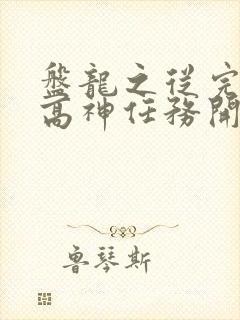 盤龍之從完
高神任務開
魯琴斯